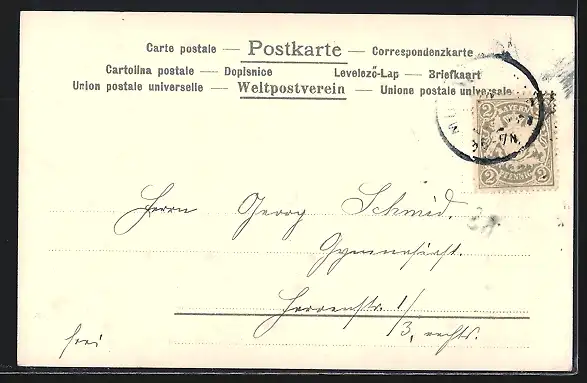 Carte postale — Postkarte — Correspondenzkarte
Cartolina postale — Dopisnice Levelező-Lap — Briefkaart
Union postale universelle — Weltpostverein — Unione postale universale
2 BAYERN 2
2 PFENNIG 2
Herrn Georg Schmid.
Gymnasiast.
Herrenstr. 1/
/3, rechts.
frei